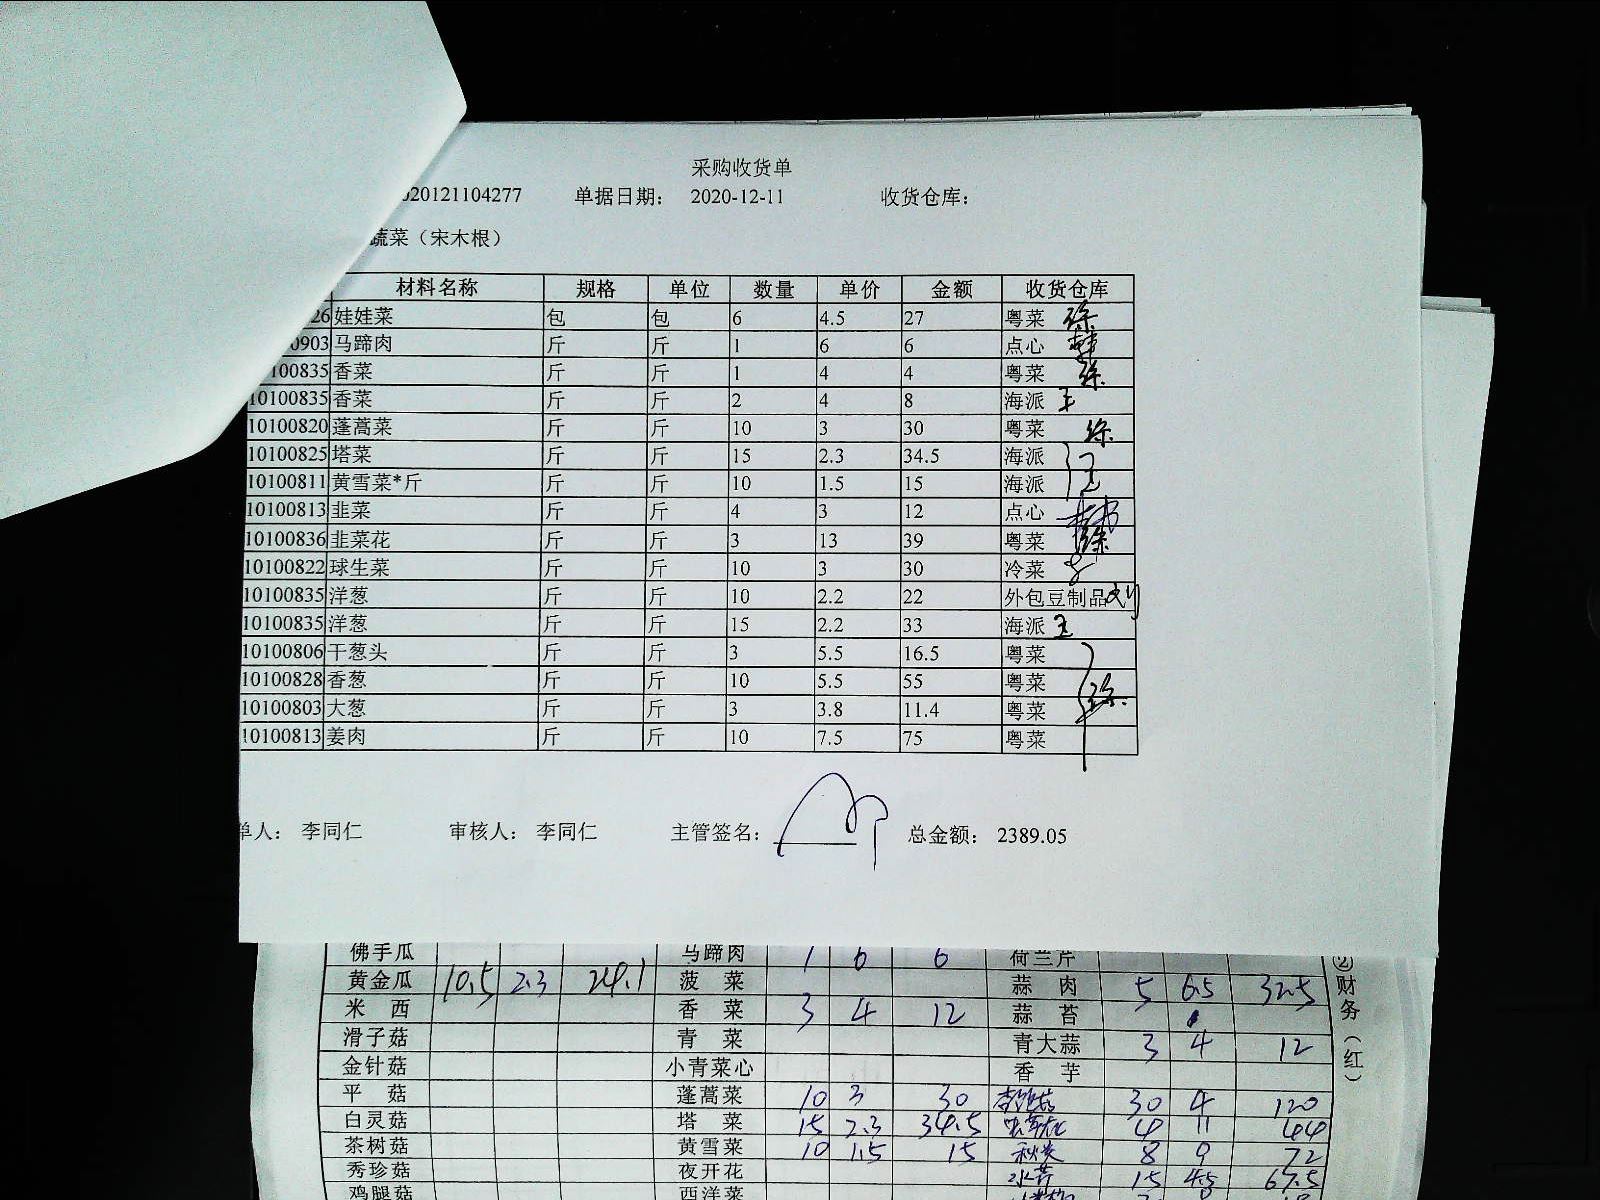 采购收货单
020121104277 单据日期： 2020-12-11 收货仓库：
蔬菜（宋木根）
材料名称 规格 单位 数量 单价 金额 收货仓库
26 娃娃菜 包 包 6 4.5 27 粤菜 徐
0903 马蹄肉 斤 斤 1 6 6 点心
100835 香菜 斤 斤 1 4 4 粤菜 徐
10100835 香菜 斤 斤 2 4 8 海派 王
10100820 蓬蒿菜 斤 斤 10 3 30 粤菜 徐
10100825 塔菜 斤 斤 15 2.3 34.5 海派
10100811 黄雪菜*斤 斤 斤 10 1.5 15 海派 王
10100813 韭菜 斤 斤 4 3 12 点心
10100836 韭菜花 斤 斤 3 13 39 粤菜 徐
10100822 球生菜 斤 斤 10 3 30 冷菜
10100835 洋葱 斤 斤 10 2.2 22 外包豆制品 刘
10100835 洋葱 斤 斤 15 2.2 33 海派 王
10100806 干葱头 斤 斤 3 5.5 16.5 粤菜
10100828 香葱 斤 斤 10 5.5 55 粤菜 徐
10100803 大葱 斤 斤 3 3.8 11.4 粤菜
10100813 姜肉 斤 斤 10 7.5 75 粤菜
单人： 李同仁 审核人： 李同仁 主管签名： 总金额： 2389.05
佛手瓜 马蹄肉 1 6 6 荷兰芹
黄金瓜 10.5 2.3 24.1 菠菜 蒜肉 5 6.5 32.5
米西 香菜 3 4 12 蒜苔
滑子菇 青菜 青大蒜 3 4 12
金针菇 小青菜心 香芋
平菇 蓬蒿菜 10 3 30 30 4 120
白灵菇 塔菜 15 2.3 34.5 4 11 44
茶树菇 黄雪菜 10 1.5 15 秋葵 8 9 72
秀珍菇 夜开花 水芹 15 4.5 67.5
鸡腿菇 西洋菜
②财务（红）